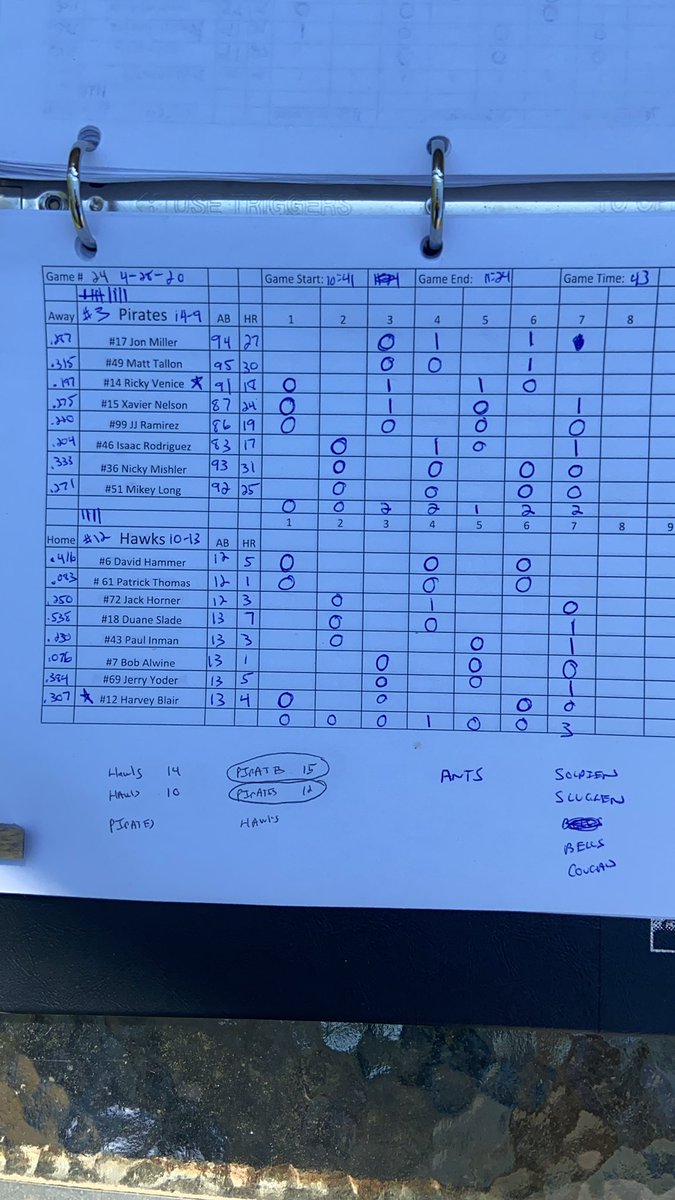 USE TRIGGERS
Game # 24 4-28-20 Game Start: 10:41 Game End: 11:24 Game Time: 43
Away #3 Pirates 14-9 AB HR 1 2 3 4 5 6 7 8
.287 #17 Jon Miller 94 27 0 1 1
.315 #49 Matt Tallon 95 30 0 0 1
.197 #14 Ricky Venice ★ 91 18 0 1 1 0
.275 #15 Xavier Nelson 87 24 0 1 0 1
.220 #99 JJ Ramirez 86 19 0 0 0 0
.204 #46 Isaac Rodriguez 83 17 0 1 0 1
.333 #36 Nicky Mishler 93 31 0 0 0 0
.271 #51 Mikey Long 92 25 0 0 0 0
0 0 2 2 1 2 2
1 2 3 4 5 6 7 8 9
Home #12 Hawks 10-13 AB HR
.416 #6 David Hammer 12 5 0 0 0
.083 # 61 Patrick Thomas 12 1 0 0 0
.250 #72 Jack Horner 12 3 0 1 0
.538 #18 Duane Slade 13 7 0 0 1
.230 #43 Paul Inman 13 3 0 0 1
.076 #7 Bob Alwine 13 1 0 0 0
.384 #69 Jerry Yoder 13 5 0 0 1
.307 ★ #12 Harvey Blair 13 4 0 0 0 0
0 0 0 1 0 0 3
Hawks 14 PIRATES 15 ANTS SOLDIER
Hawks 10 PIRATES 12 SLUGGER
PIRATES HAWKS
BELLS
COUGAR